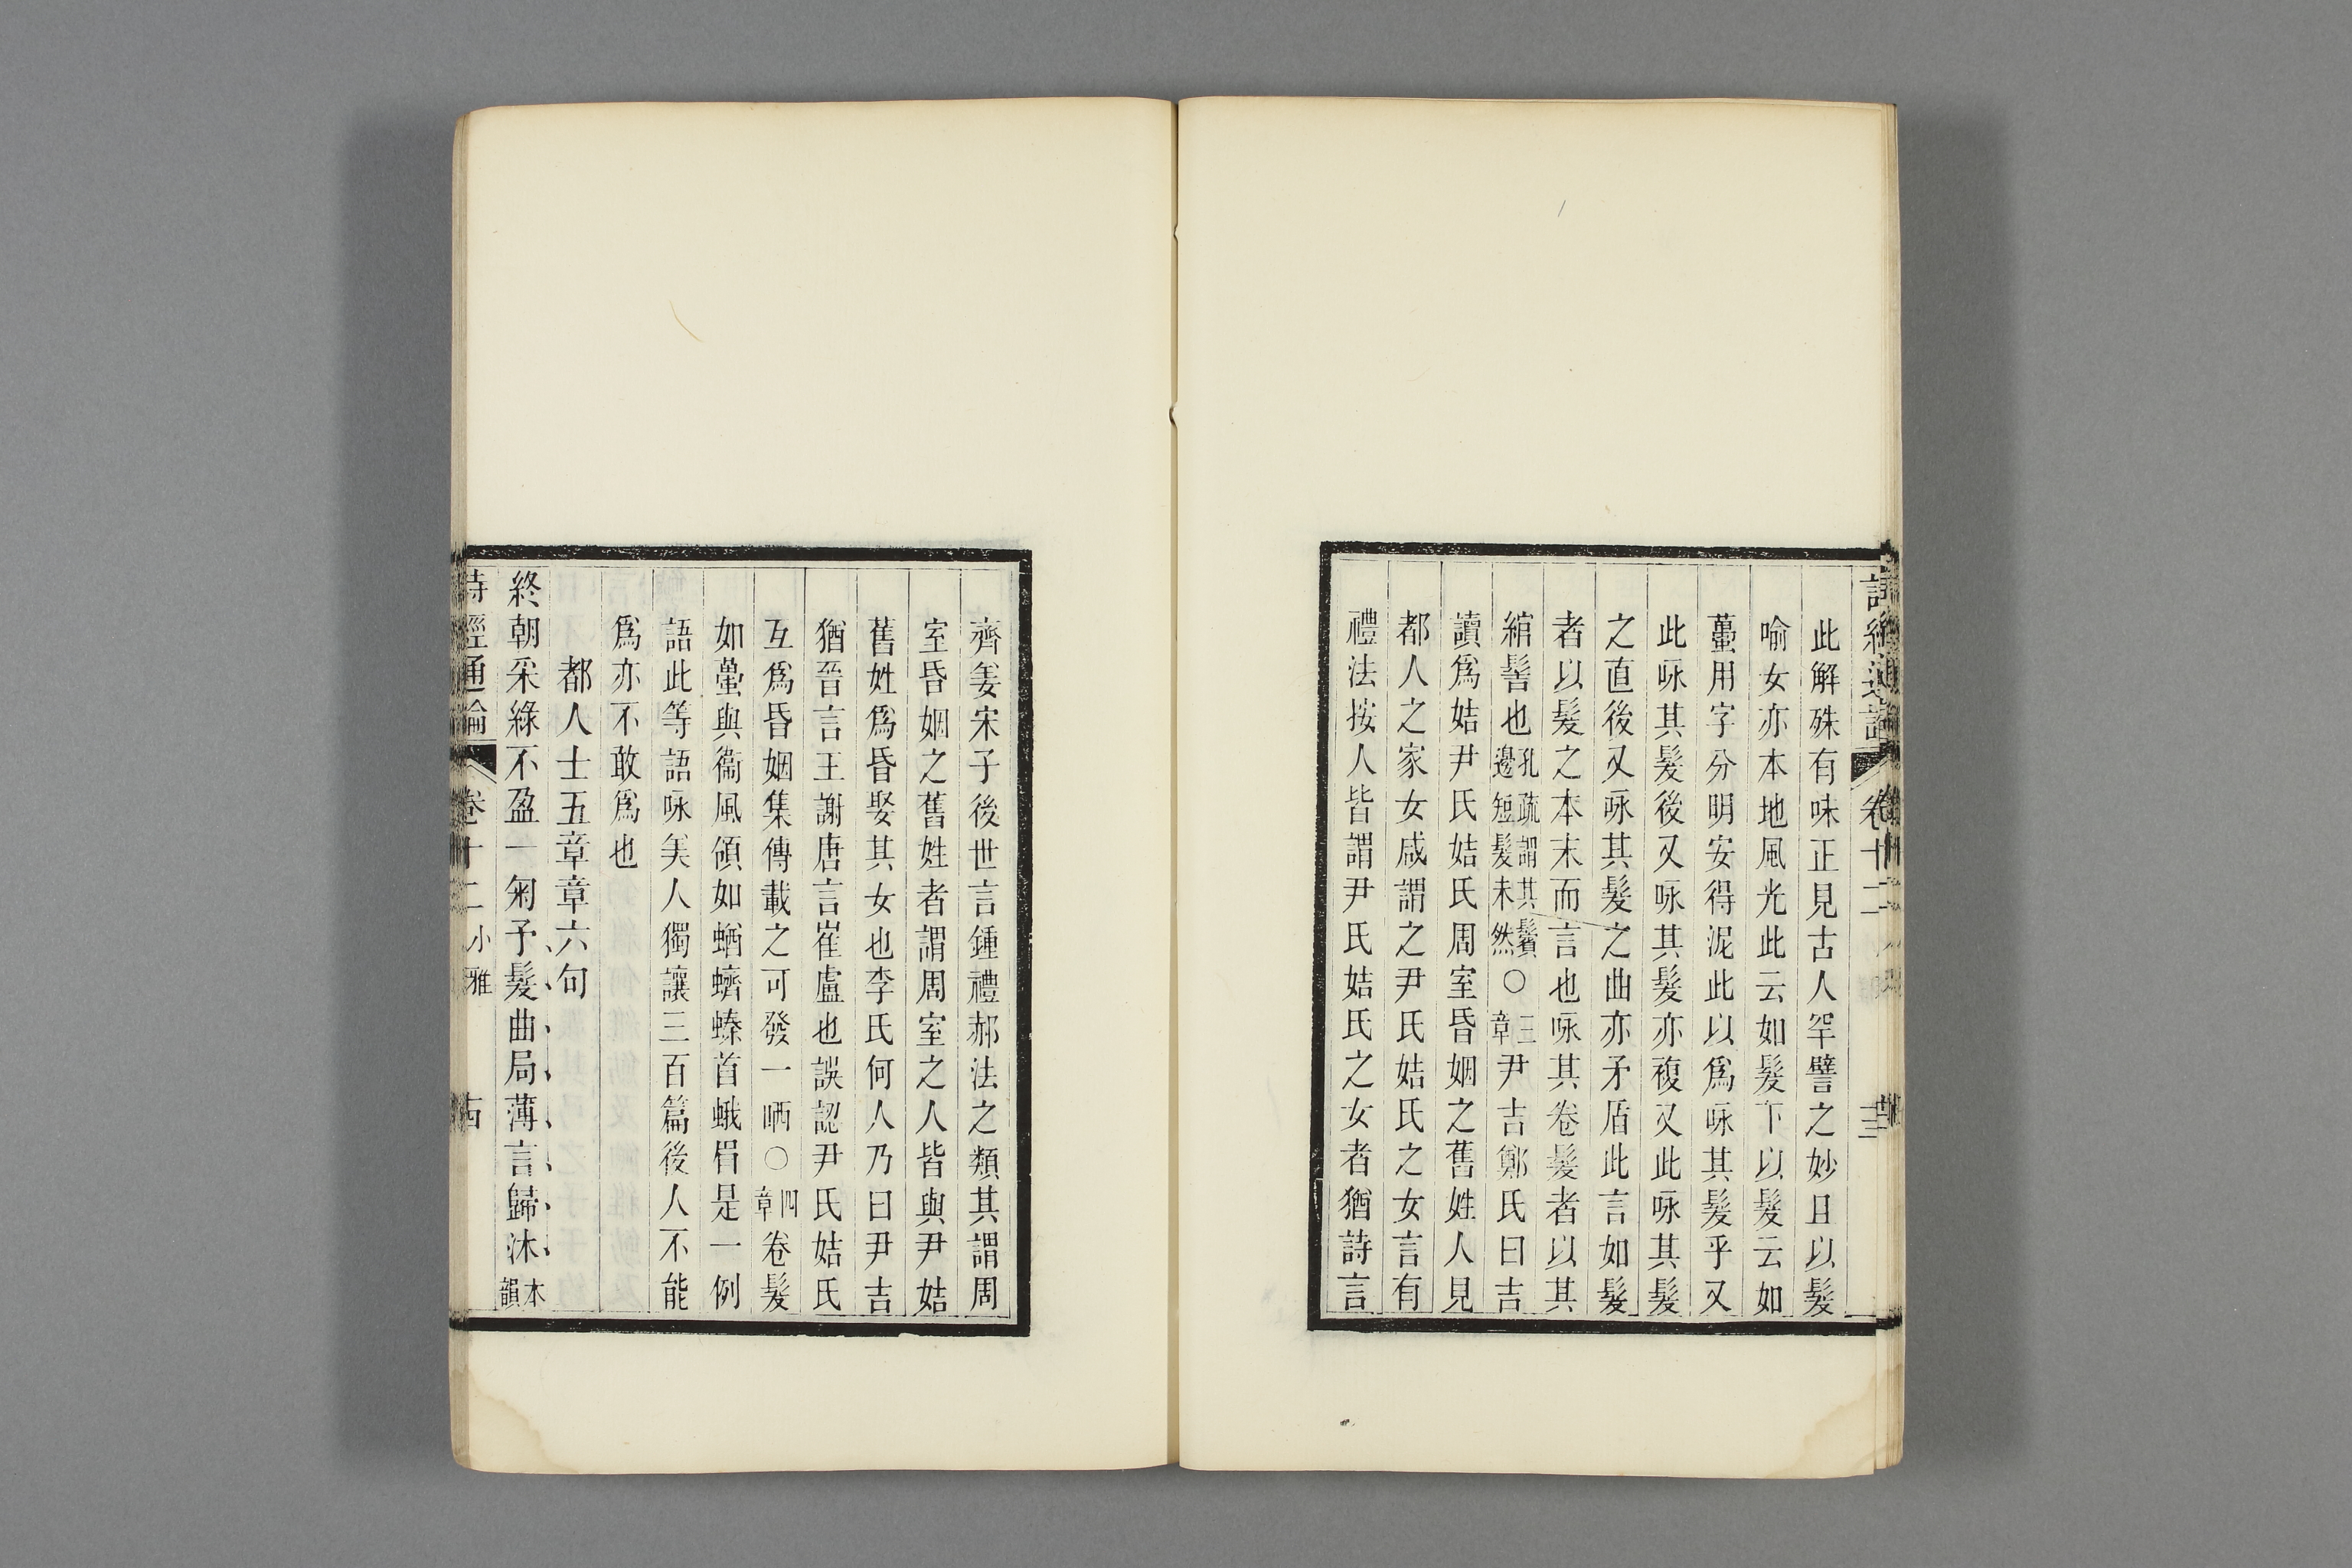 詩經通論 卷十二
此解殊有味正見古人罕譬之妙且以髮
喻女亦本地風光此云如髮下以髮云如
蠆用字分明安得泥此以爲咏其髮乎又
此咏其髮後又咏其髮亦複又此咏其髮
之直後又咏其髮之曲亦矛盾此言如髮
者以髮之本末而言也咏其卷髮者以其
綰髻也孔疏謂其鬢邊短髮未然○三章尹吉鄭氏曰吉
讀爲姞尹氏姞氏周室昏姻之舊姓人見
都人之家女咸謂之尹氏姞氏之女言有
禮法按人皆謂尹氏姞氏之女者猶詩言
齊姜宋子後世言鍾禮郝法之類其謂周
室昏姻之舊姓者謂周室之人皆與尹姞
舊姓爲昏娶其女也李氏何人乃曰尹吉
猶晉言王謝唐言崔盧也誤認尹氏姞氏
互爲昏姻集傳載之可發一哂○四章卷髮
如蠆與衞風領如蝤蠐螓首蛾眉是一例
語此等語咏美人獨讓三百篇後人不能
爲亦不敢爲也
都人士五章章六句
終朝采綠不盈一匊予髮曲局薄言歸沐本韻
詩經通論 卷十二 小雅